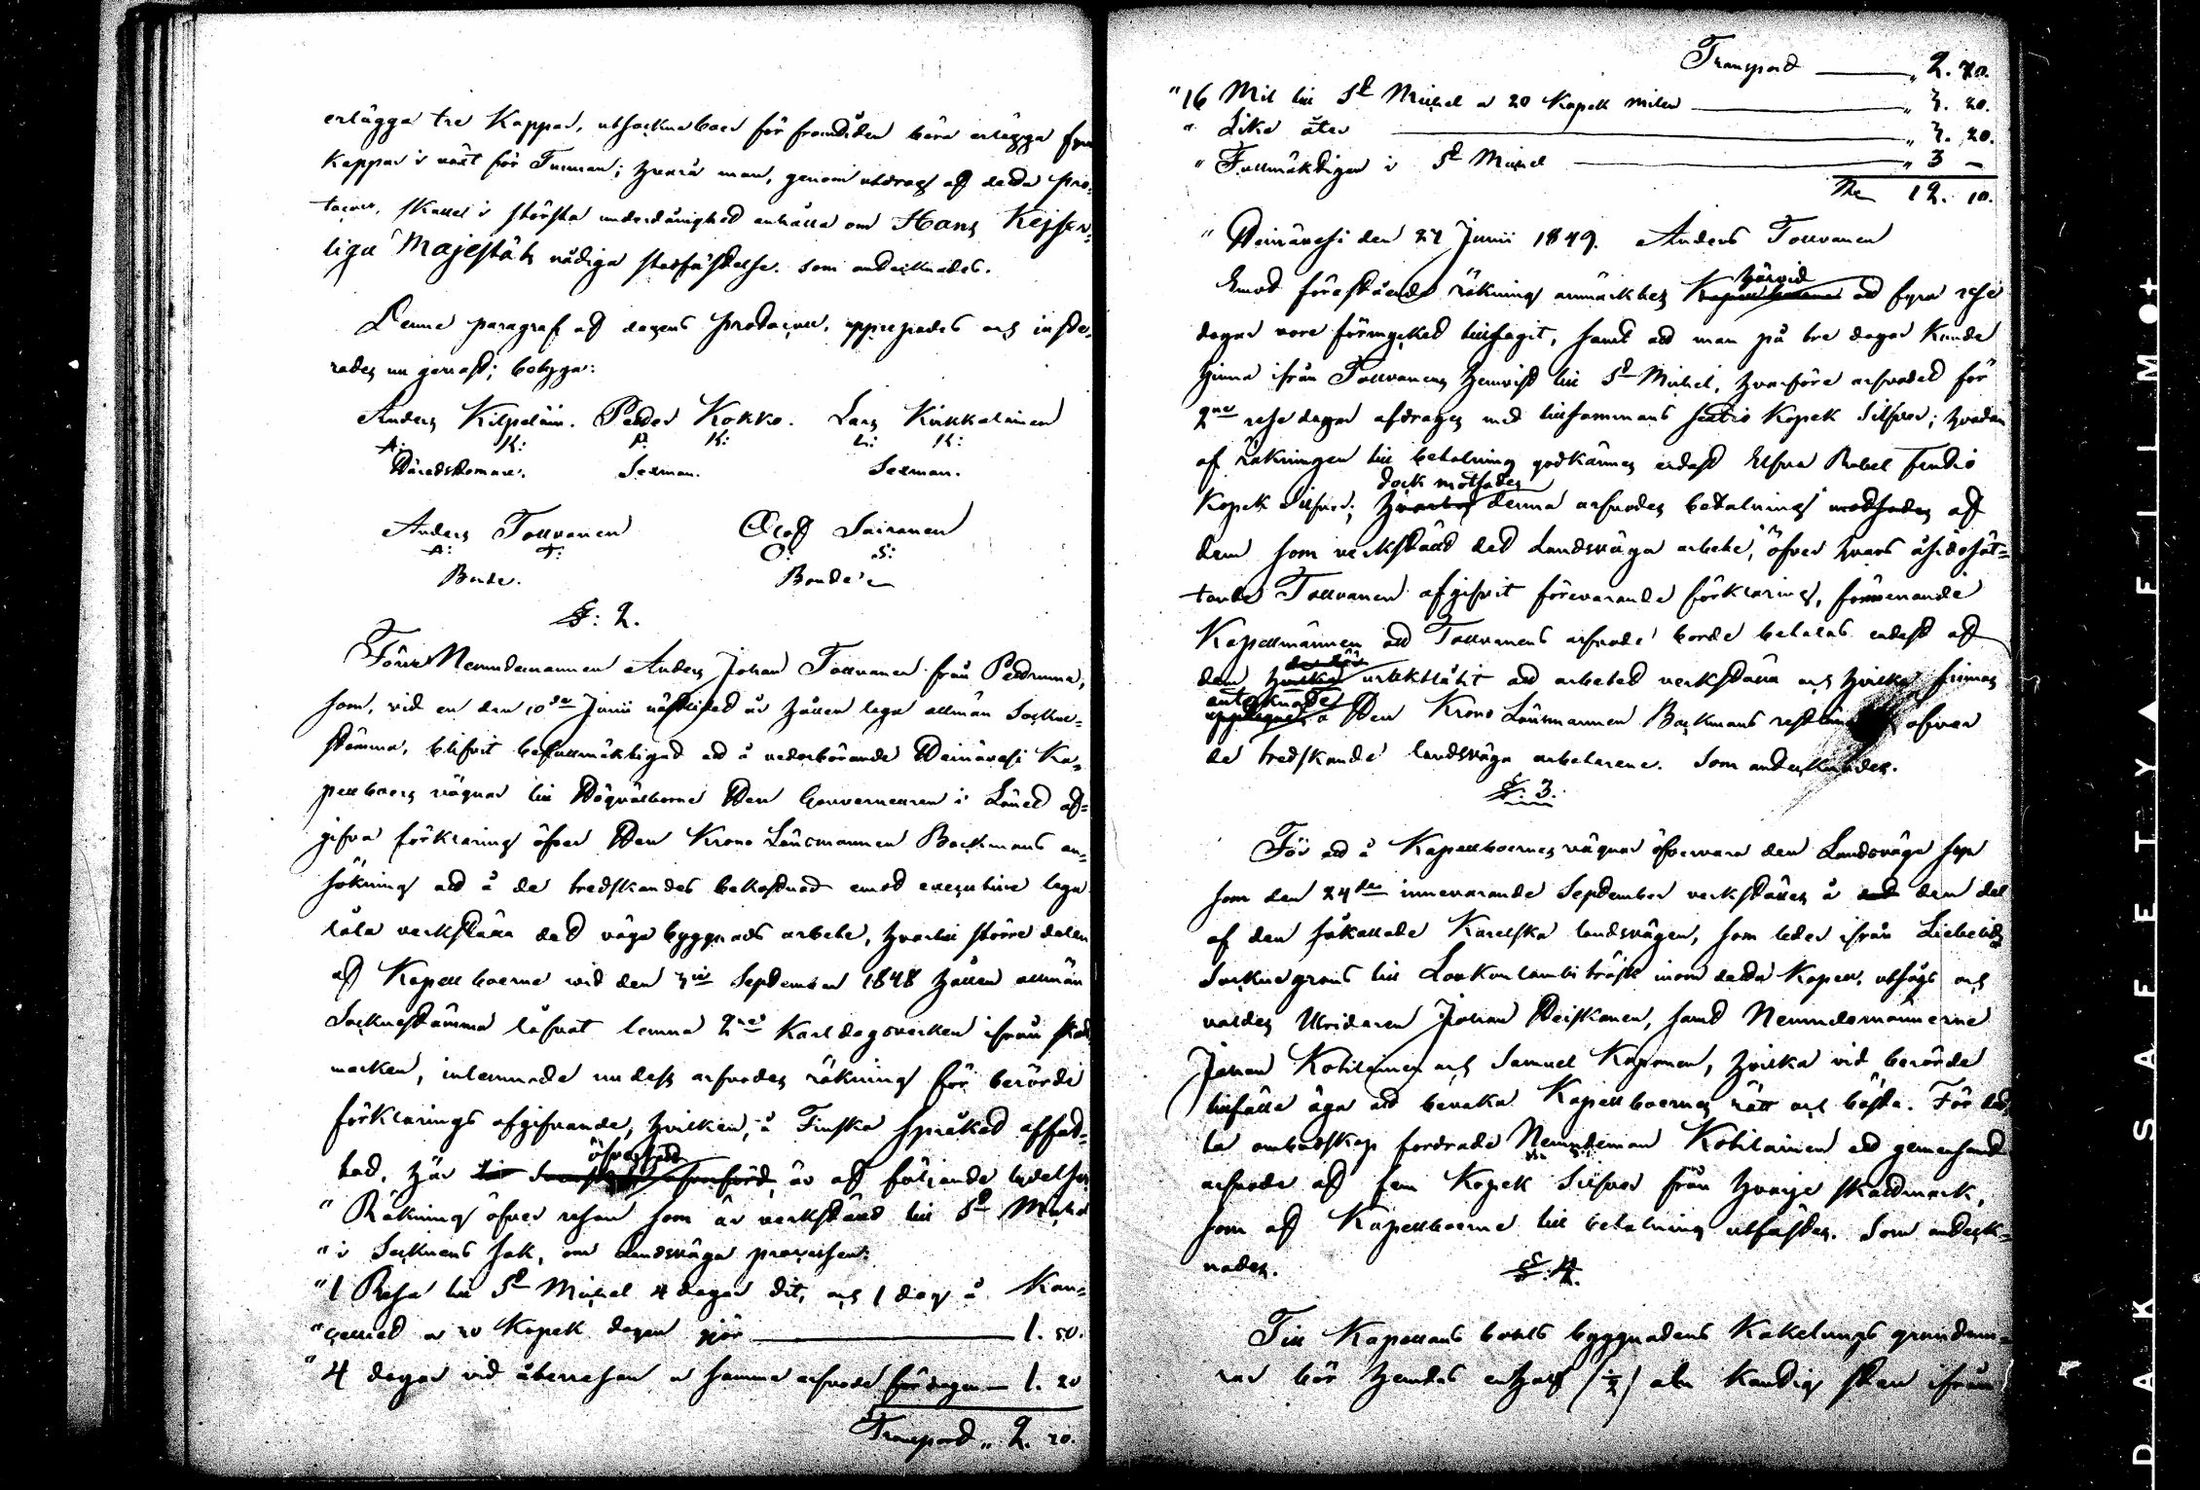 erlägga tre Kappar, utsockneboer för framtiden böra erlägga fyra
Kappar i växt för Tunnan; hvarå man, genom utdrag af detta Pro-
tocoll, skulle i största underdånighet anhålla om Hans Kejser-
liga Majestäts nådiga stadfästelse. Som antecknades.
Denne paragraf af dagens Protocoll, upprepades och juste-
rades nu genast; betyga:
Anders Kilpeläin. Petter Kokko. Lars Kirkkalainen
A: K: P: K: L: K:
Häradsdomare. Sexman. Sexman.
Anders Tollvanen Olof Sairanen
A: T: O: S:
Bonde. Bonde
§: 2.
Förre Nemndemannen Anders Johan Tollvanen från Petrumma,
som, vid en den 10de Junii nästledet år hållen laga allmän Sockne-
stämma, blifvit befullmäktigad att å vederbörande Heinävesi Ka-
pellboers vägnar till Högvälborne Herr Gouverneuren i Länet af-
gifva förklaring öfver Herr Krono Länsmannen Backmans an-
sökning att å de tredskandes bekostnad emot executive lega
låta verkställa det väga byggnads arbete, hvartill större delen
af Kapellboerne vid den 3die September 1848 hållen allmän
Socknestämma låfvat lemna 2ne Karldagsverken ifrån skatt
marken, inlemnade nu dess arfvodes räkning för berörde
förklarings afgifvande, hvilken, å Finska språket affat-
tad, här öfversatt är af följande lydelse
" Räkning öfver resan som är verkstäld till St Michel
" i Socknens sak, om Landsväga processen:
" 1 Resa till St Michel 4 dagar dit, och 1 dag å Kan-
" celliet a 30 Kopek dagen gjör 1. 50.
" 4 dagar vid återresan a samma arfvode för dagen 1. 20
Transport " 2. 70.
Transport " 2. 70.
" 16 Mil till St Michel a 20 Kopek milen " 3. 20.
" Lika åter " 3. 20.
" Fullmäktigen i St Michel " 3 —
12. 10.
" Heinävesi den 27 Junii 1849. Anders Tollvanen
Emot föreståendе räkning anmärktes härvid att fyra rese
dagar vore förmycket tilltagit, samt att man på tre dagar kunde
hinna ifrån Tollvanens hemvist till St Michel, hvarföre arfvodet för
2ne rese dagar afdrages med tillsammans sextio Kopek Silfver; hvadan
af räkningen till betalning godkännes endast Elfva Rubel femtio
dock motsades
Kopek Silfver; denna arfvodes betalning af
dem som verkstält det Landsväga arbete, öfver hvars åsidosät-
tande Tollvanen afgifvit förevarande förklaring, förmenande
Kapellmännen att Tollvanens arfvode borde betalas endast af
dem urlåtit att arbetet verkställa och hvilka finnas
antecknade å Herr Krono Länsmannen Backmans öfver
de tredskande landsväga arbetarene. Som antecknades.
§: 3.
För att å Kapellboernes vägnar öfvervara den Landsväga syn
som den 24de innevarande September verkställes å den del
af den såkallade Karelska landsvägen, som leder ifrån Liebelits
Sockne gräns till träsk inom detta Kapell, utsågs och
valdes Utridaren Johan Heiskanen, samt Nemndemännerne
Johan Kohilainen och Samuel Koponen, hvilka vid berörde
tillfälle äga att bevaka Kapellboernes rätt och bästa. För det-
ta ombudskap fordrade Nemndeman Kohilainen att gemensamt
arfvode af fem Kopek Silfver från hvarje skattmark,
som af Kapellboerne till betalning utfästes. Som anteck-
nades.
§: 4.
Till Kapellans bohls byggnadens Kakelungs grundmu-
rar bör hemtas ett half (½) aln kandig sten ifrån